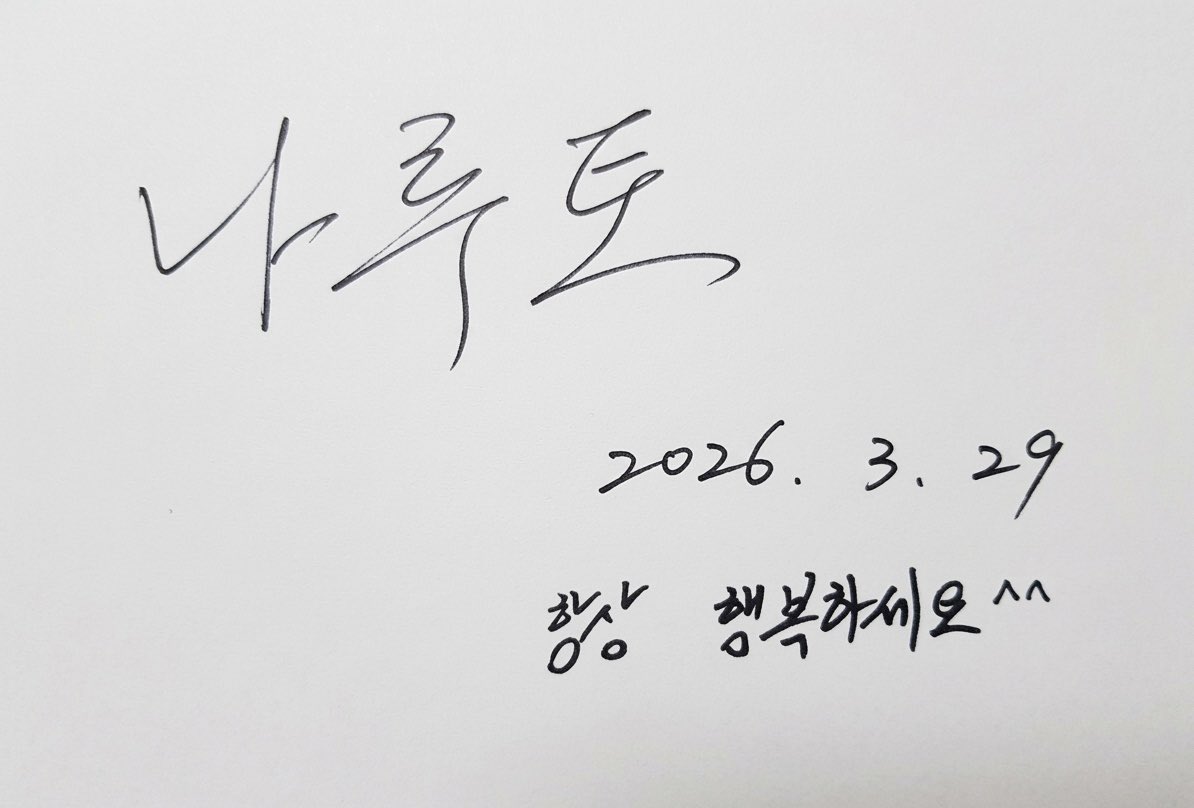 나루토
2026. 3. 29
항상 행복하세요^^